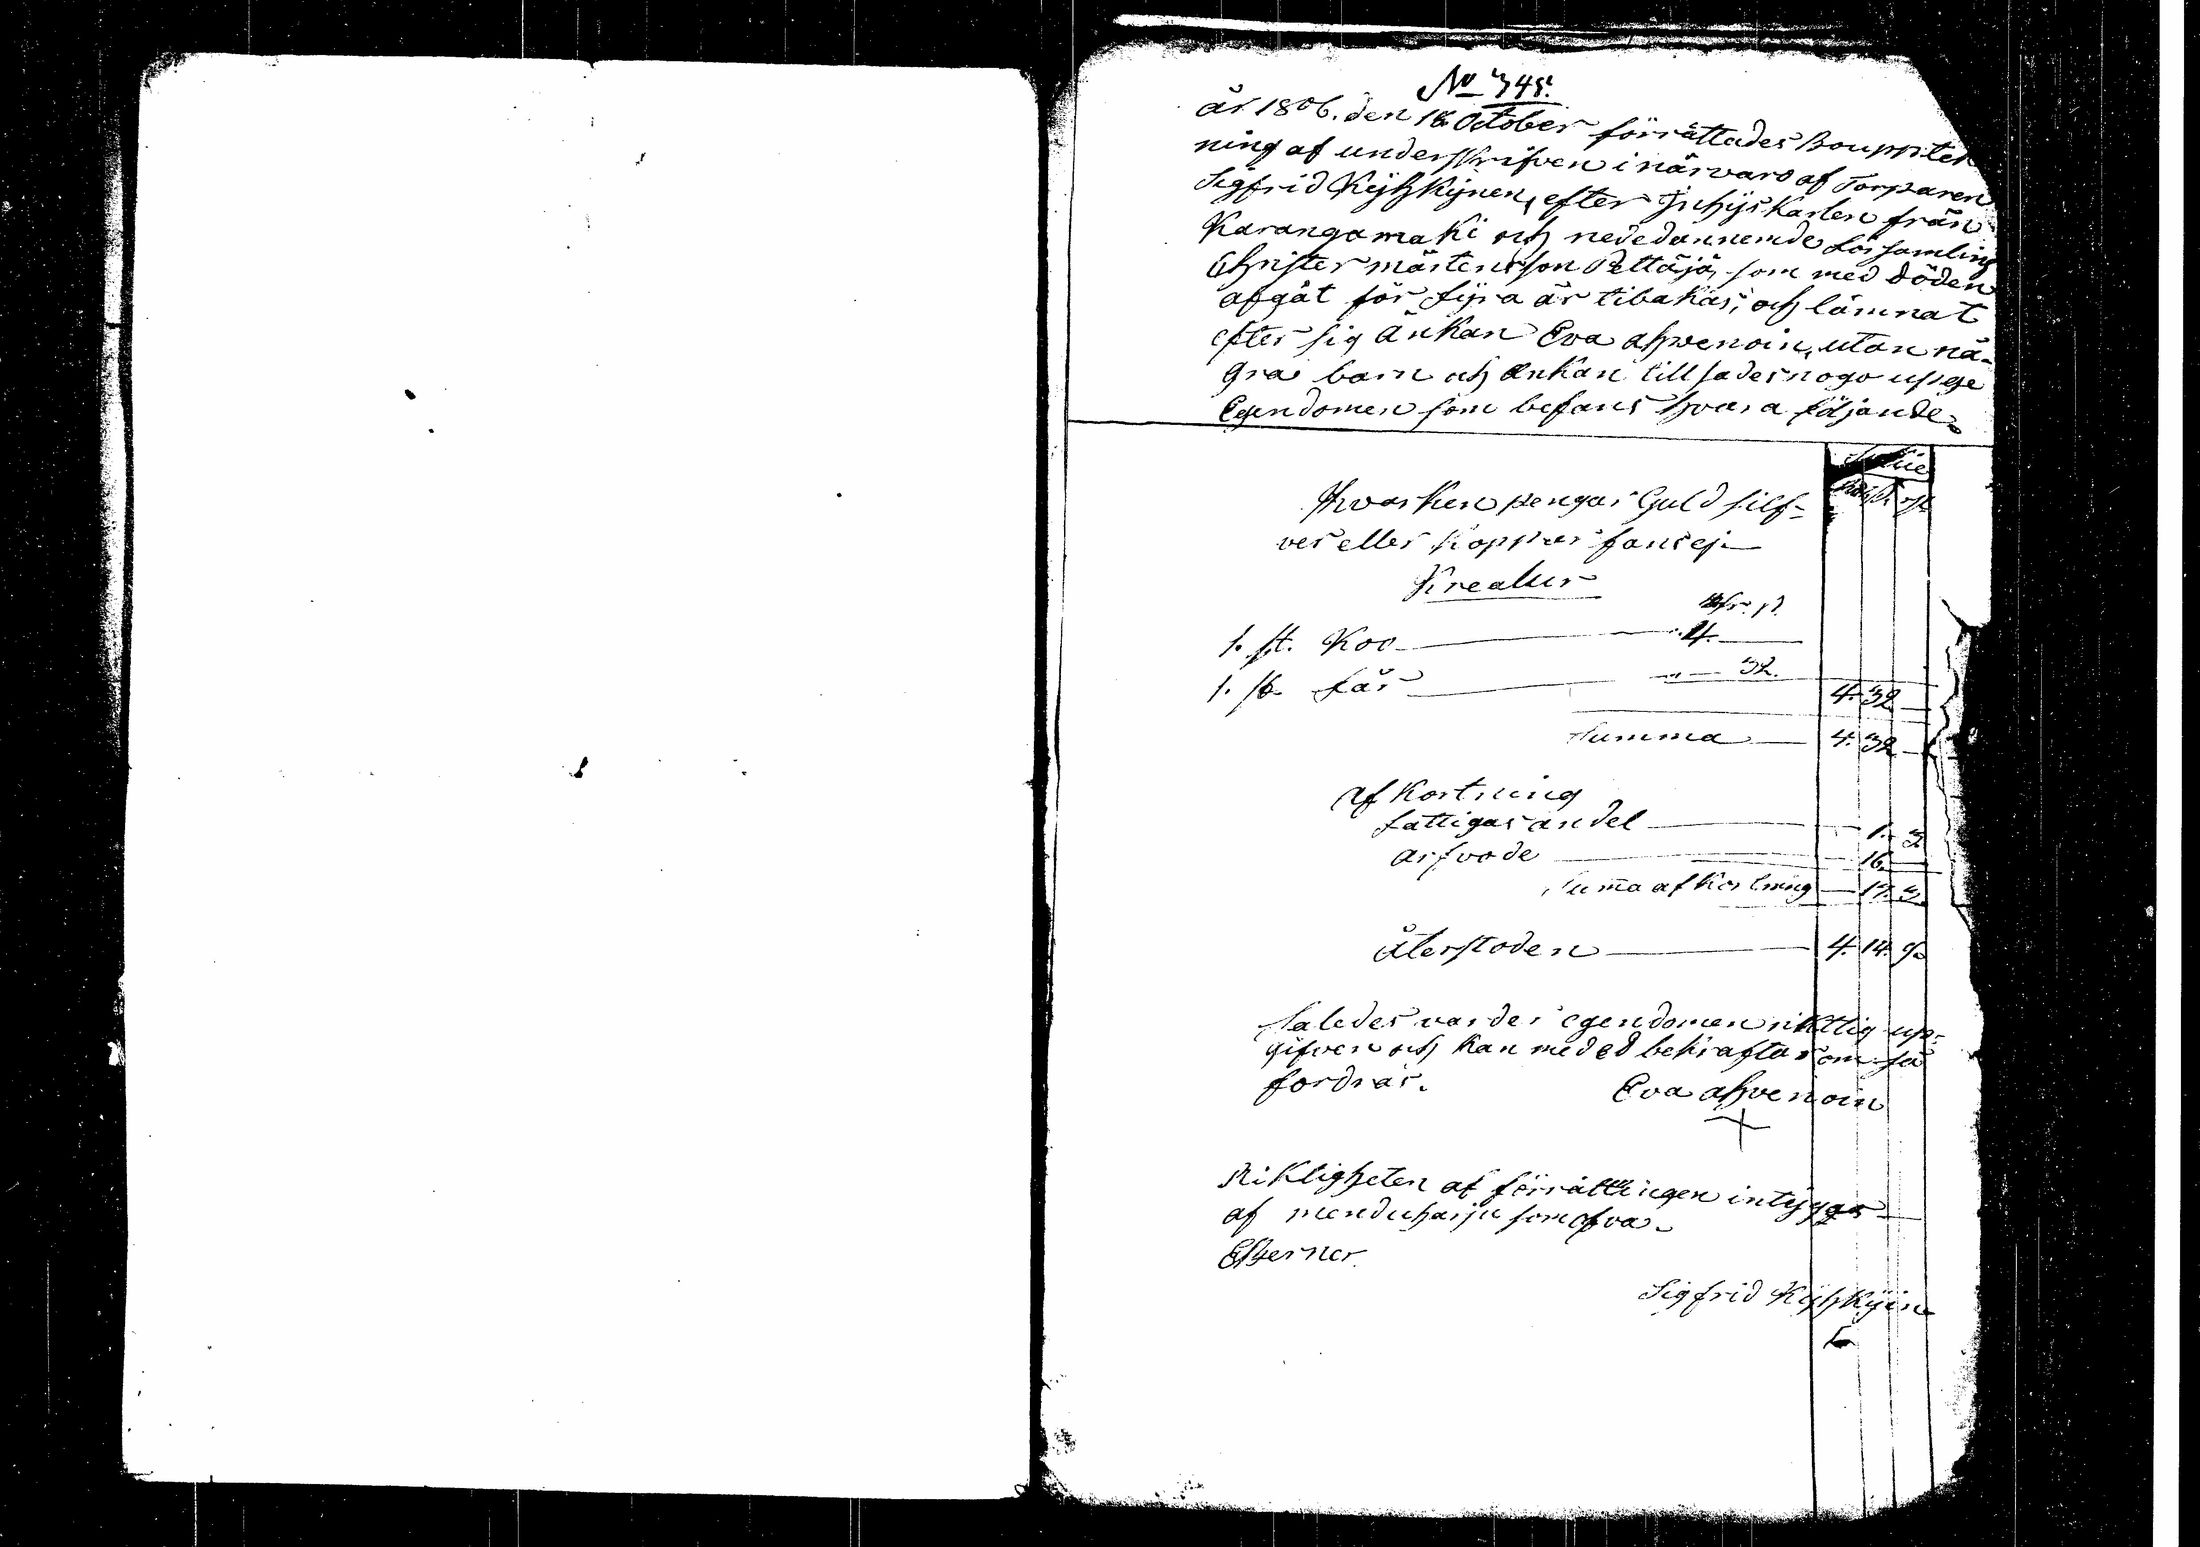 No 345.
år 1806. den 18 October förrättades Bouppteck
ning af underskrifven i närvaro af Torparen
Sigfrid Kyhkynen, efter Inhyskarlen från
Karangamaki och nededannemde församling
Christer mårtensson Pettäjä, som med döden
afgåt för fyra år tibakas, och lämnat
efter sig änkan Eva ahvenoin, utan nå-
gra barn och enkan tillsades nogo upge
Egendomen som befans hvara följande
Hvarken pengar Guld silf-
ver eller koppar fans ej
Kreatur
1. st. Koo 4.
1. st. får 32. 4. 32
Summa 4. 32
af kortning
fattigas andel 1. 3
arfvode 16.
Suma af kortning 17. 3
Återstoden 4. 14. 9.
Saledes varder egendomen riktig up-
gifven och kan med ed bekräftas om så
fordras. Eva ahvenoin
Riktigheten af förrättningen intygar
af menduharju som ofva
Sigfrid Kyhkyin